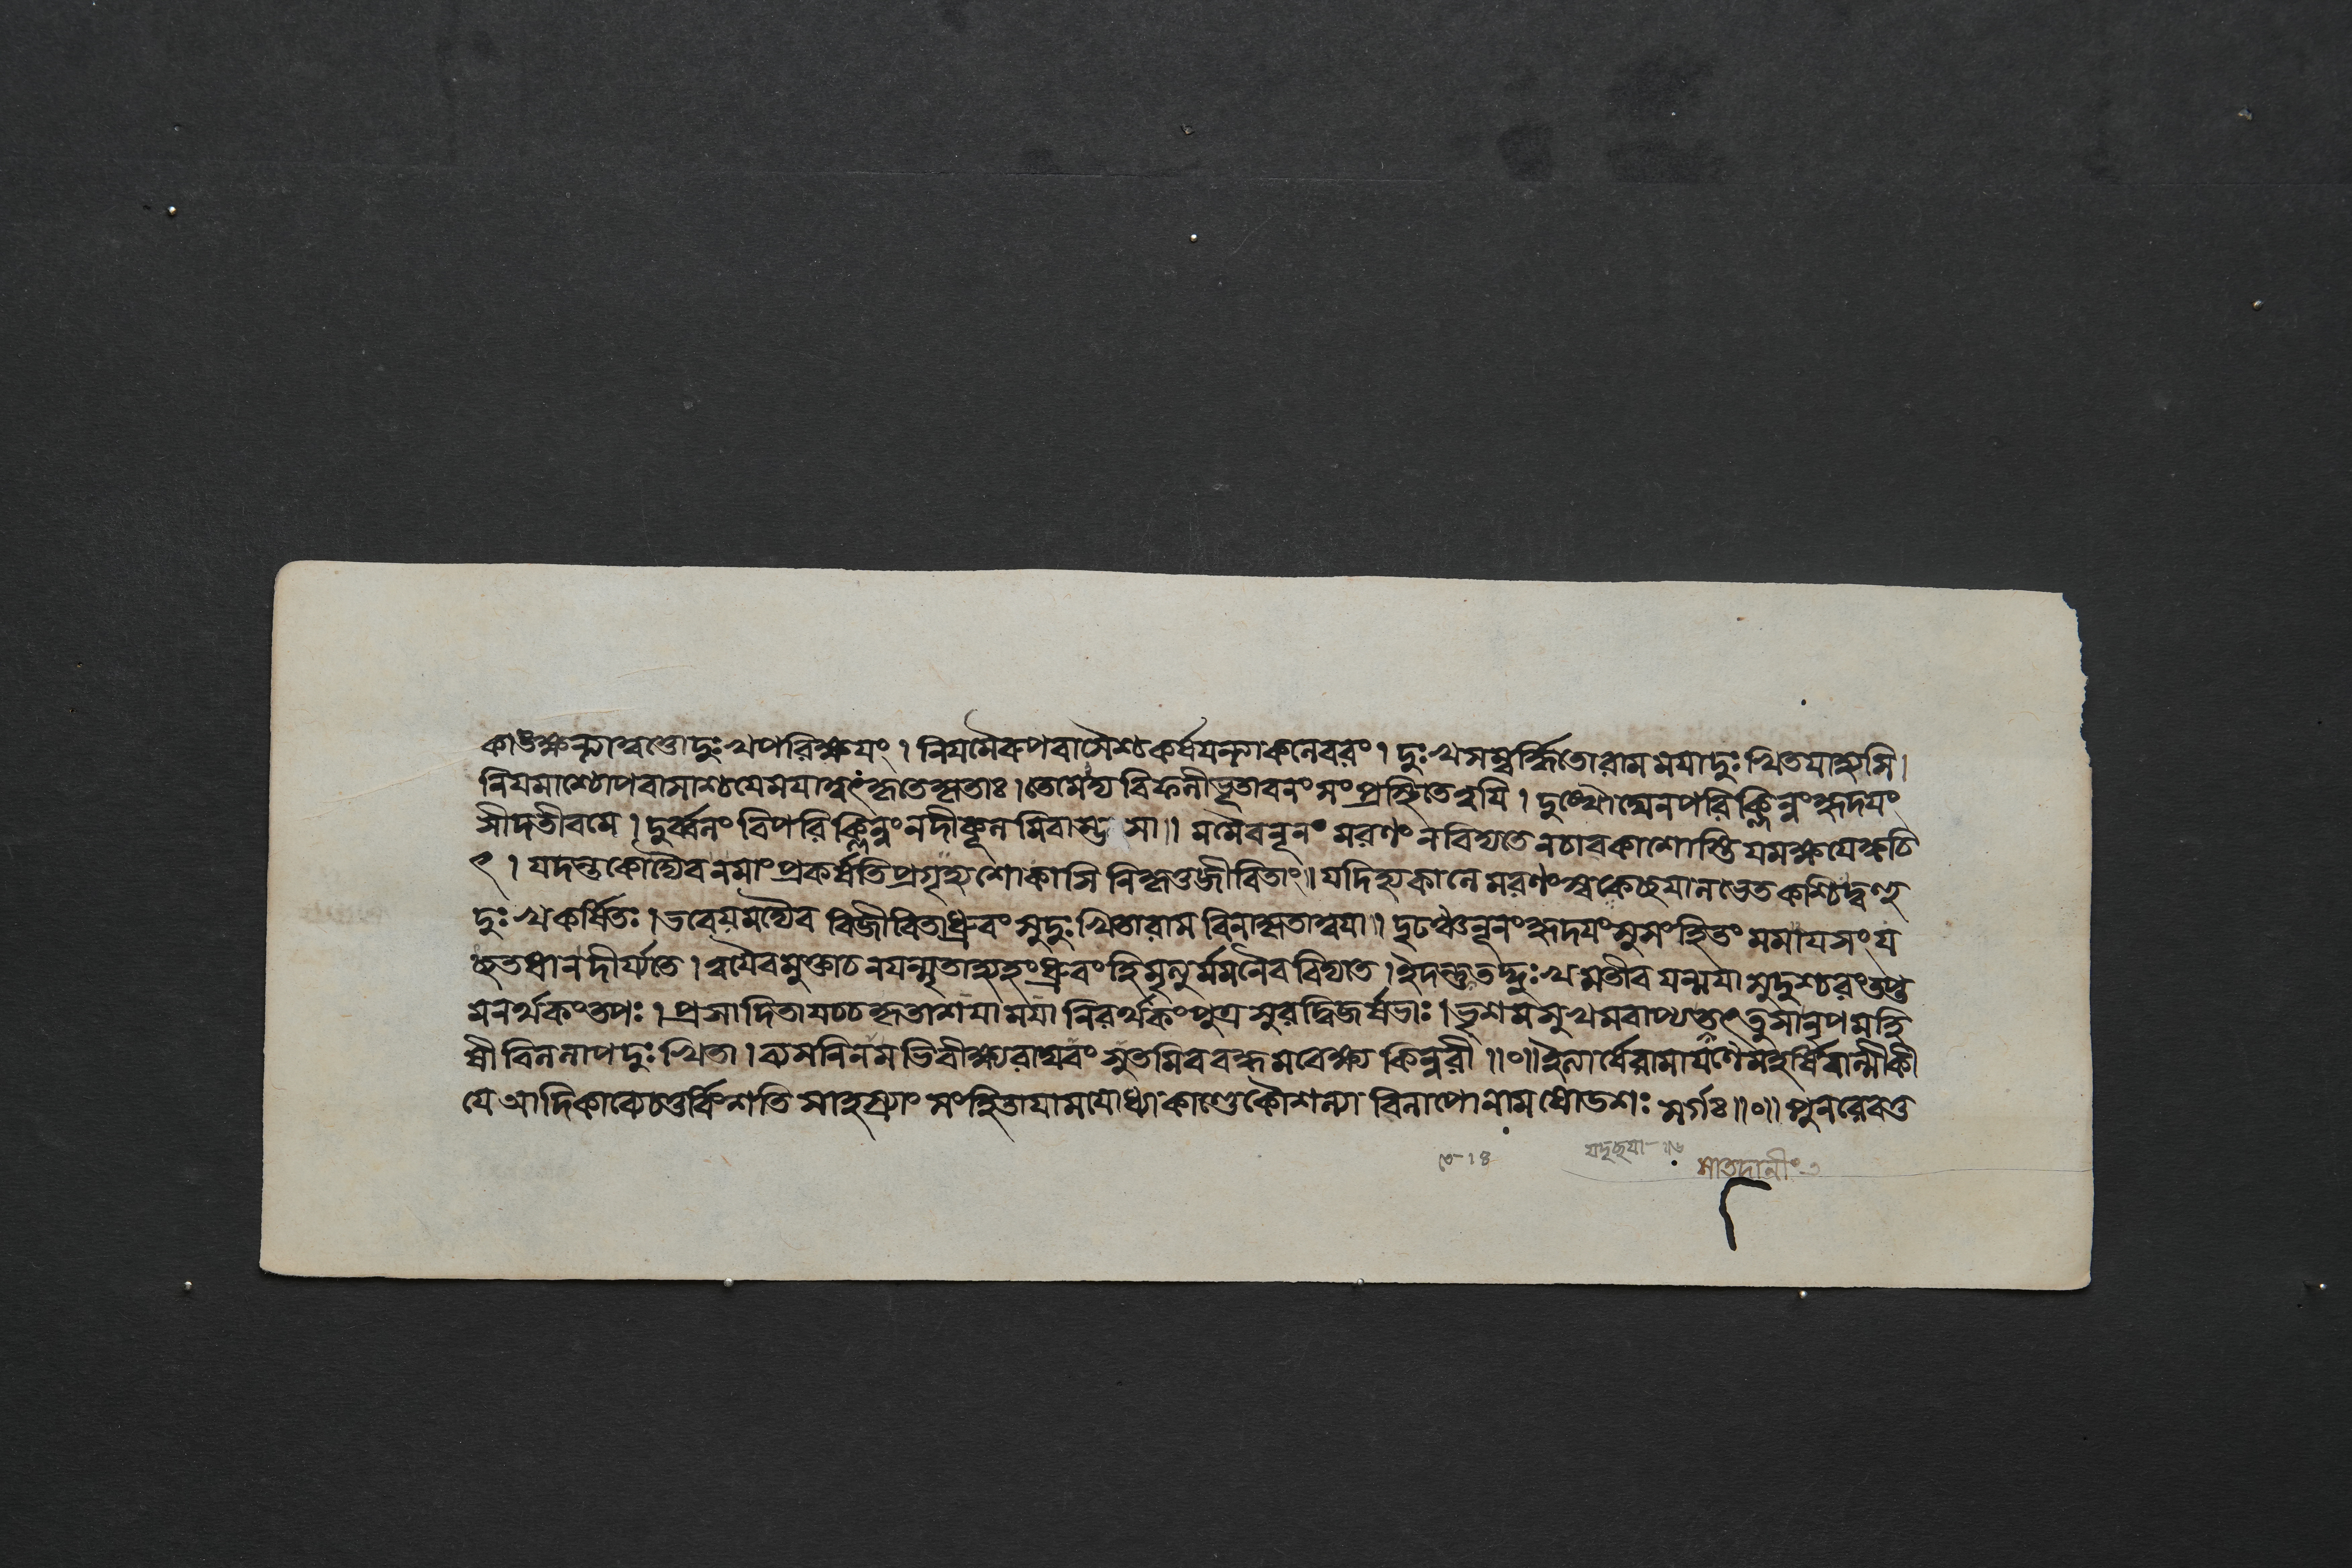 কাঙক্ষন্ত্যাস্ত্বত্তো দুঃখপরিক্ষয়ং । নিয়মৈরুপবাসৈশ্চ কর্ষয়ন্ত্যা কলেবরং । দুঃখসম্বর্দ্ধিতো রাম ময়া দুঃখিতয়া হ্যসি ।
নিয়মাশ্চোপবাসাশ্চ যে ময়া ত্বৎকৃতে কৃতাঃ । তে মেদ্য বিফলীভূতা বনং সংপ্রস্থিতে ত্বয়ি । দুঃখৌঘেন পরিক্লিন্নং হৃদয়ং
সীদতীব মে । দুর্ব্বলং বিপরিক্লিন্নং নদীকূলমিবাম্ভসা ॥ মমৈব নূনং মরণং ন বিদ্যতে ন চাবকাশোস্তি যমক্ষয়ে ক্বচি
ৎ । যদন্তকোদ্যৈব ন মাং প্রকর্ষতি প্রগৃহ্য শোকাসিনিকৃত্তজীবিতাং ॥ যদি হ্যকালে মরণং স্বকেচ্ছয়া লভেত কশ্চিদ্বহু
দুঃখকর্ষিতঃ । ভবেয়মদ্যৈব বিজীবিতা ধ্রুবং সুদুঃখিতা রাম বিনাকৃতা ত্বয়া ॥ দৃঢঞ্চ নূনং হৃদয়ং সুসংহিতং মমায়সং য
চ্ছতধা ন দীর্য্যতে । ত্বয়ৈব মুক্তা চ ন যন্মৃতা হ্যহং ধ্রুবং হি মৃত্যুর্ম্মম নৈব বিদ্যতে । ইদন্তু তদ্দুঃখমতীব যন্ময়া সুদুশ্চরং তপ্ত
মনর্থকং তপঃ । প্রসাদিতা যচ্চ কৃতাশয়া ময়া নিরর্থকং পুত্র সুরদ্বিজর্ষভাঃ । ভৃশমসুখমবাপ্য তত্তু সা নৃপমহি
ষী বিললাপ দুঃখিতা । ব্যসনিনমভিবীক্ষ্য রাঘবং সুতমিব বদ্ধমবেক্ষ্য কিন্নরী ॥০॥ ইত্যার্ষে রামায়ণে মহর্ষিবাল্মীকী
য়ে আদিকাব্যে চতুর্ব্বিংশতিসাহস্র্যাং সংহিতায়ামযোধ্যাকাণ্ডে কৌশল্যাবিলাপো নাম ষোডশঃ সর্গঃ ॥০॥ পুনরেব তু
যদৃচ্ছয়া